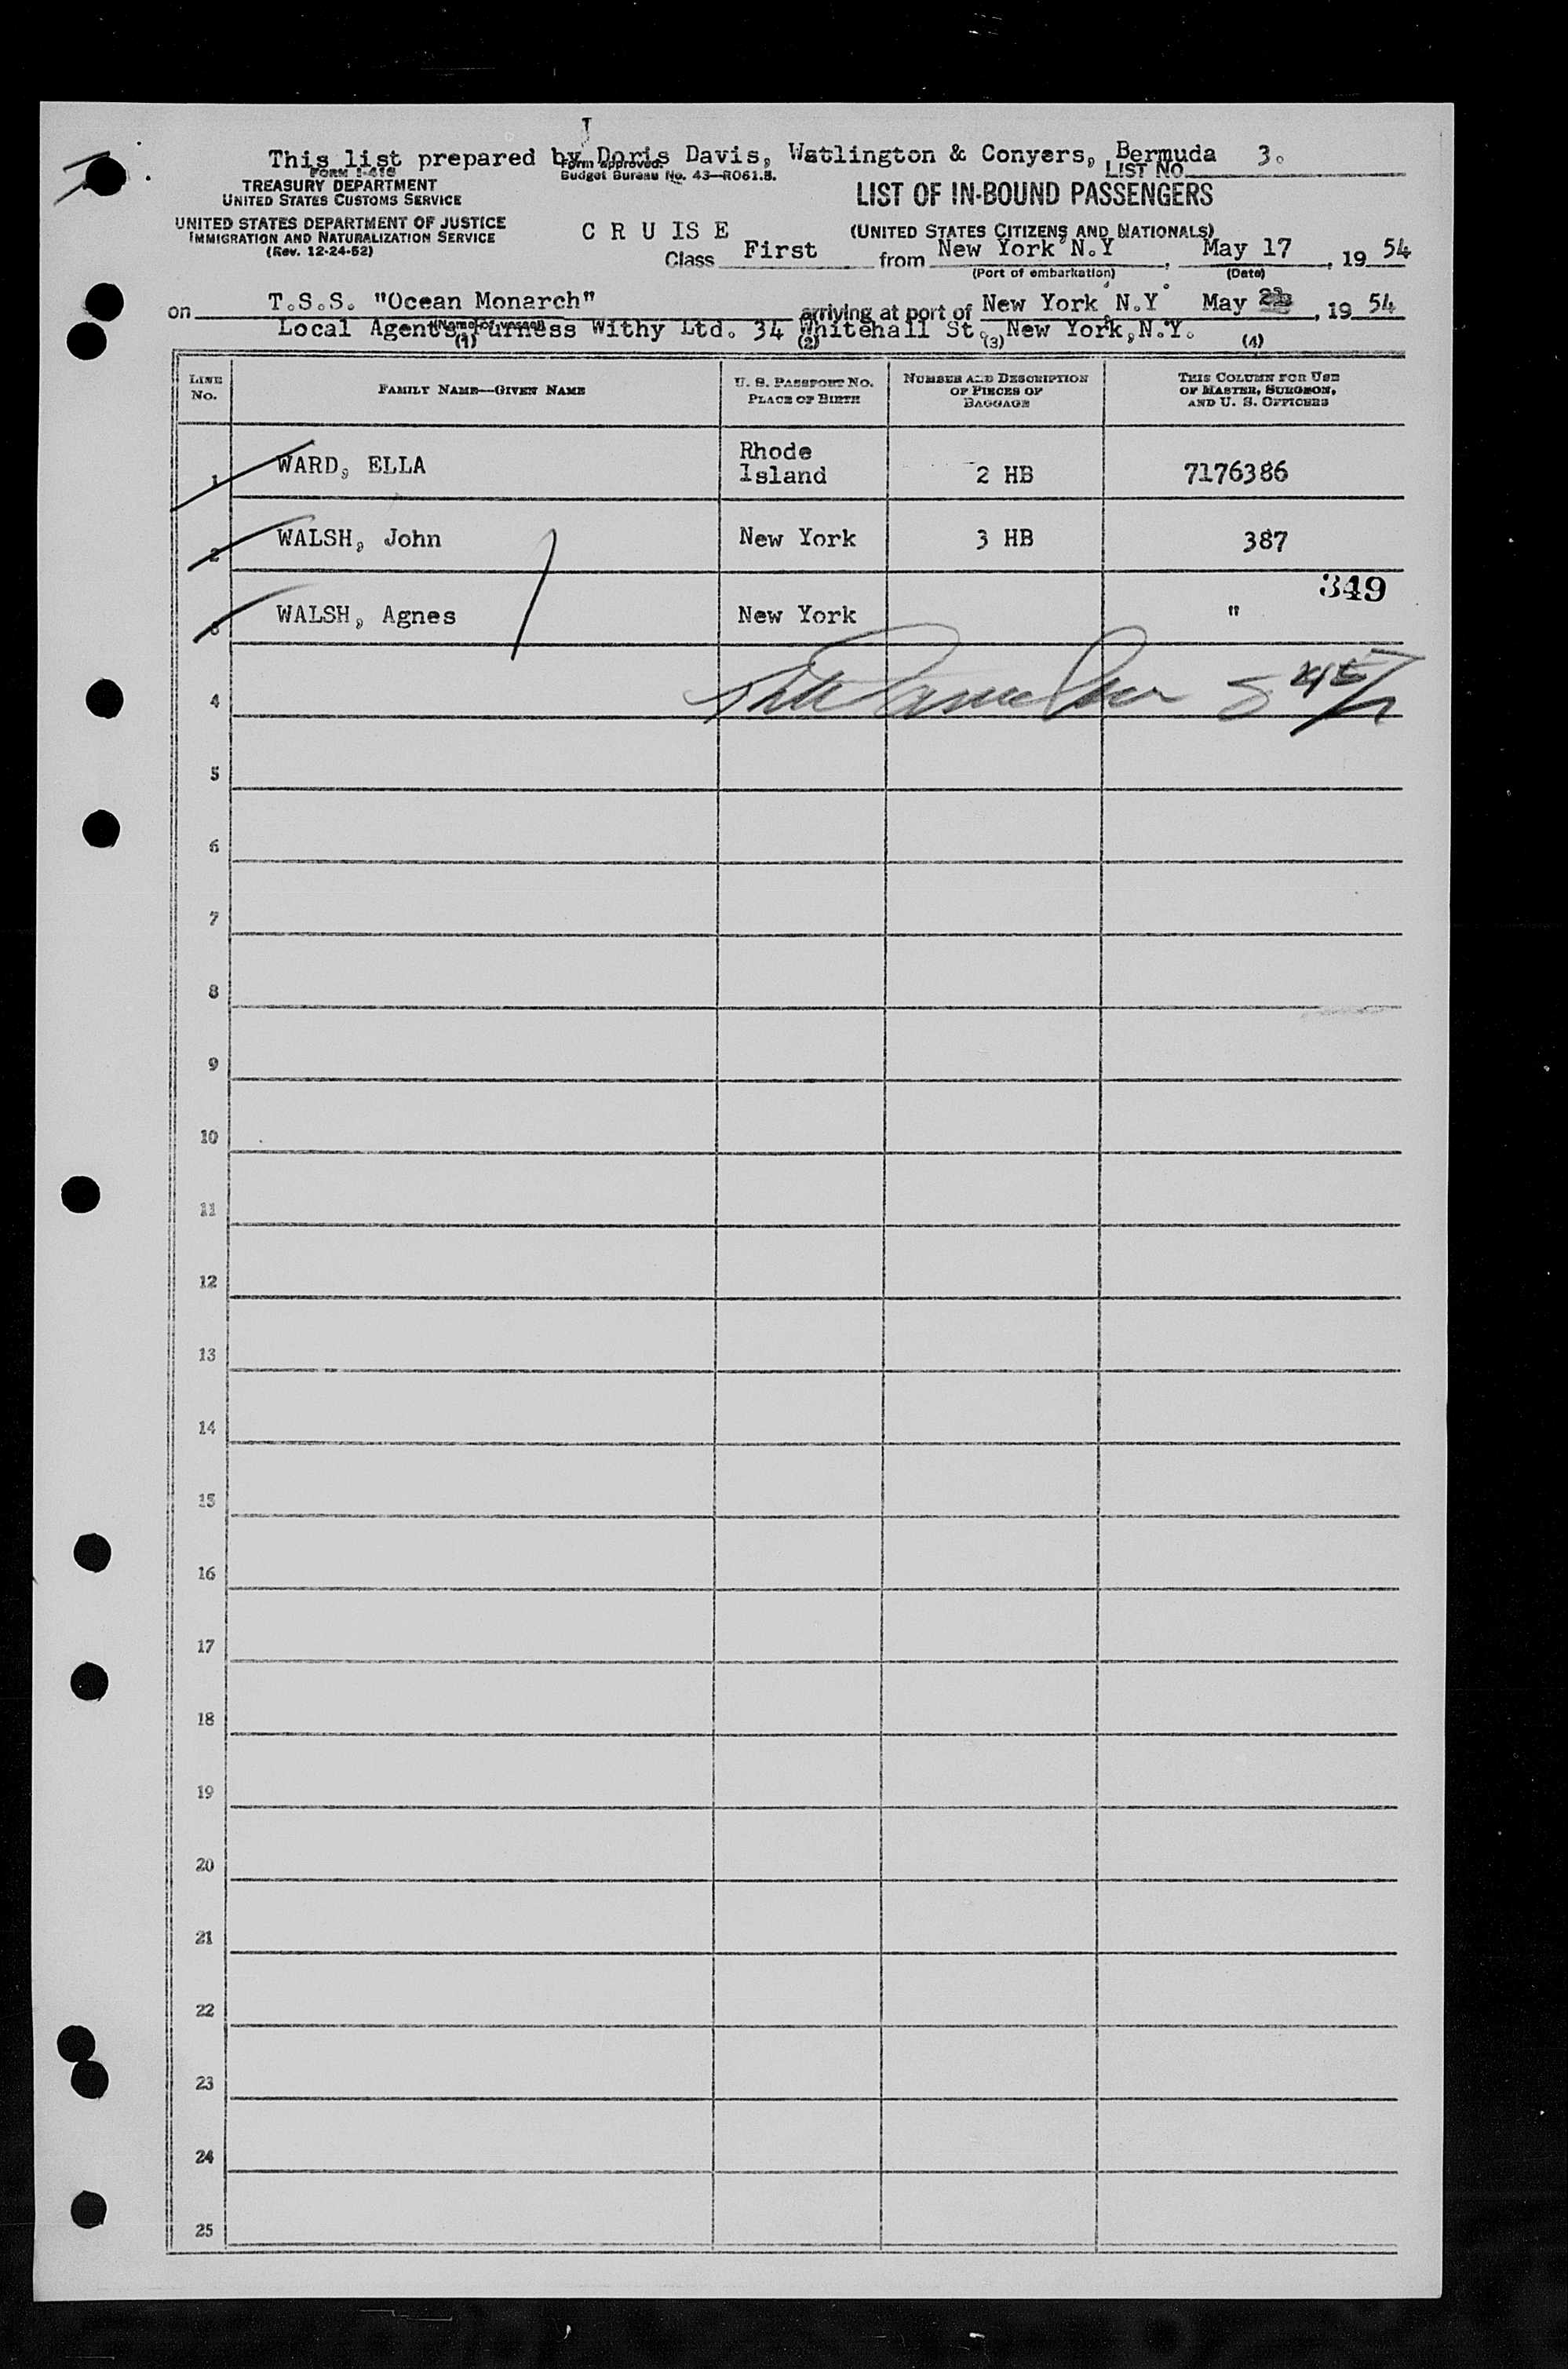 This list prepared by Doris Davis, Watlington & Conyers, Bermuda 3.
FORM I-416
Form approved.
Budget Bureau No. 43—R061.8.
LIST NO.
TREASURY DEPARTMENT
UNITED STATES CUSTOMS SERVICE
LIST OF IN-BOUND PASSENGERS
UNITED STATES DEPARTMENT OF JUSTICE
IMMIGRATION AND NATURALIZATION SERVICE
(Rev. 12-24-52)
C R U IS E
(UNITED STATES CITIZENS AND NATIONALS)
Class First from New York N.Y., May 17, 19 54
(Port of embarkation) (Date)
on T.S.S. "Ocean Monarch" arriving at port of New York, N.Y. May , 19 54
(Name of vessel)
Local Agents, Furness Withy Ltd. 34 Whitehall St., New York, N.Y.
(1) (2) (3) (4)
LINE No. FAMILY NAME—GIVEN NAME U. S. PASSPORT NO. PLACE OF BIRTH NUMBER AND DESCRIPTION OF PIECES OF BAGGAGE THIS COLUMN FOR USE OF MASTER, SURGEON, AND U. S. OFFICERS
1 WARD, ELLA Rhode Island 2 HB 7176386
2 WALSH, John New York 3 HB 387
349
3 WALSH, Agnes New York "
4
5
6
7
8
9
10
11
12
13
14
15
16
17
18
19
20
21
22
23
24
25